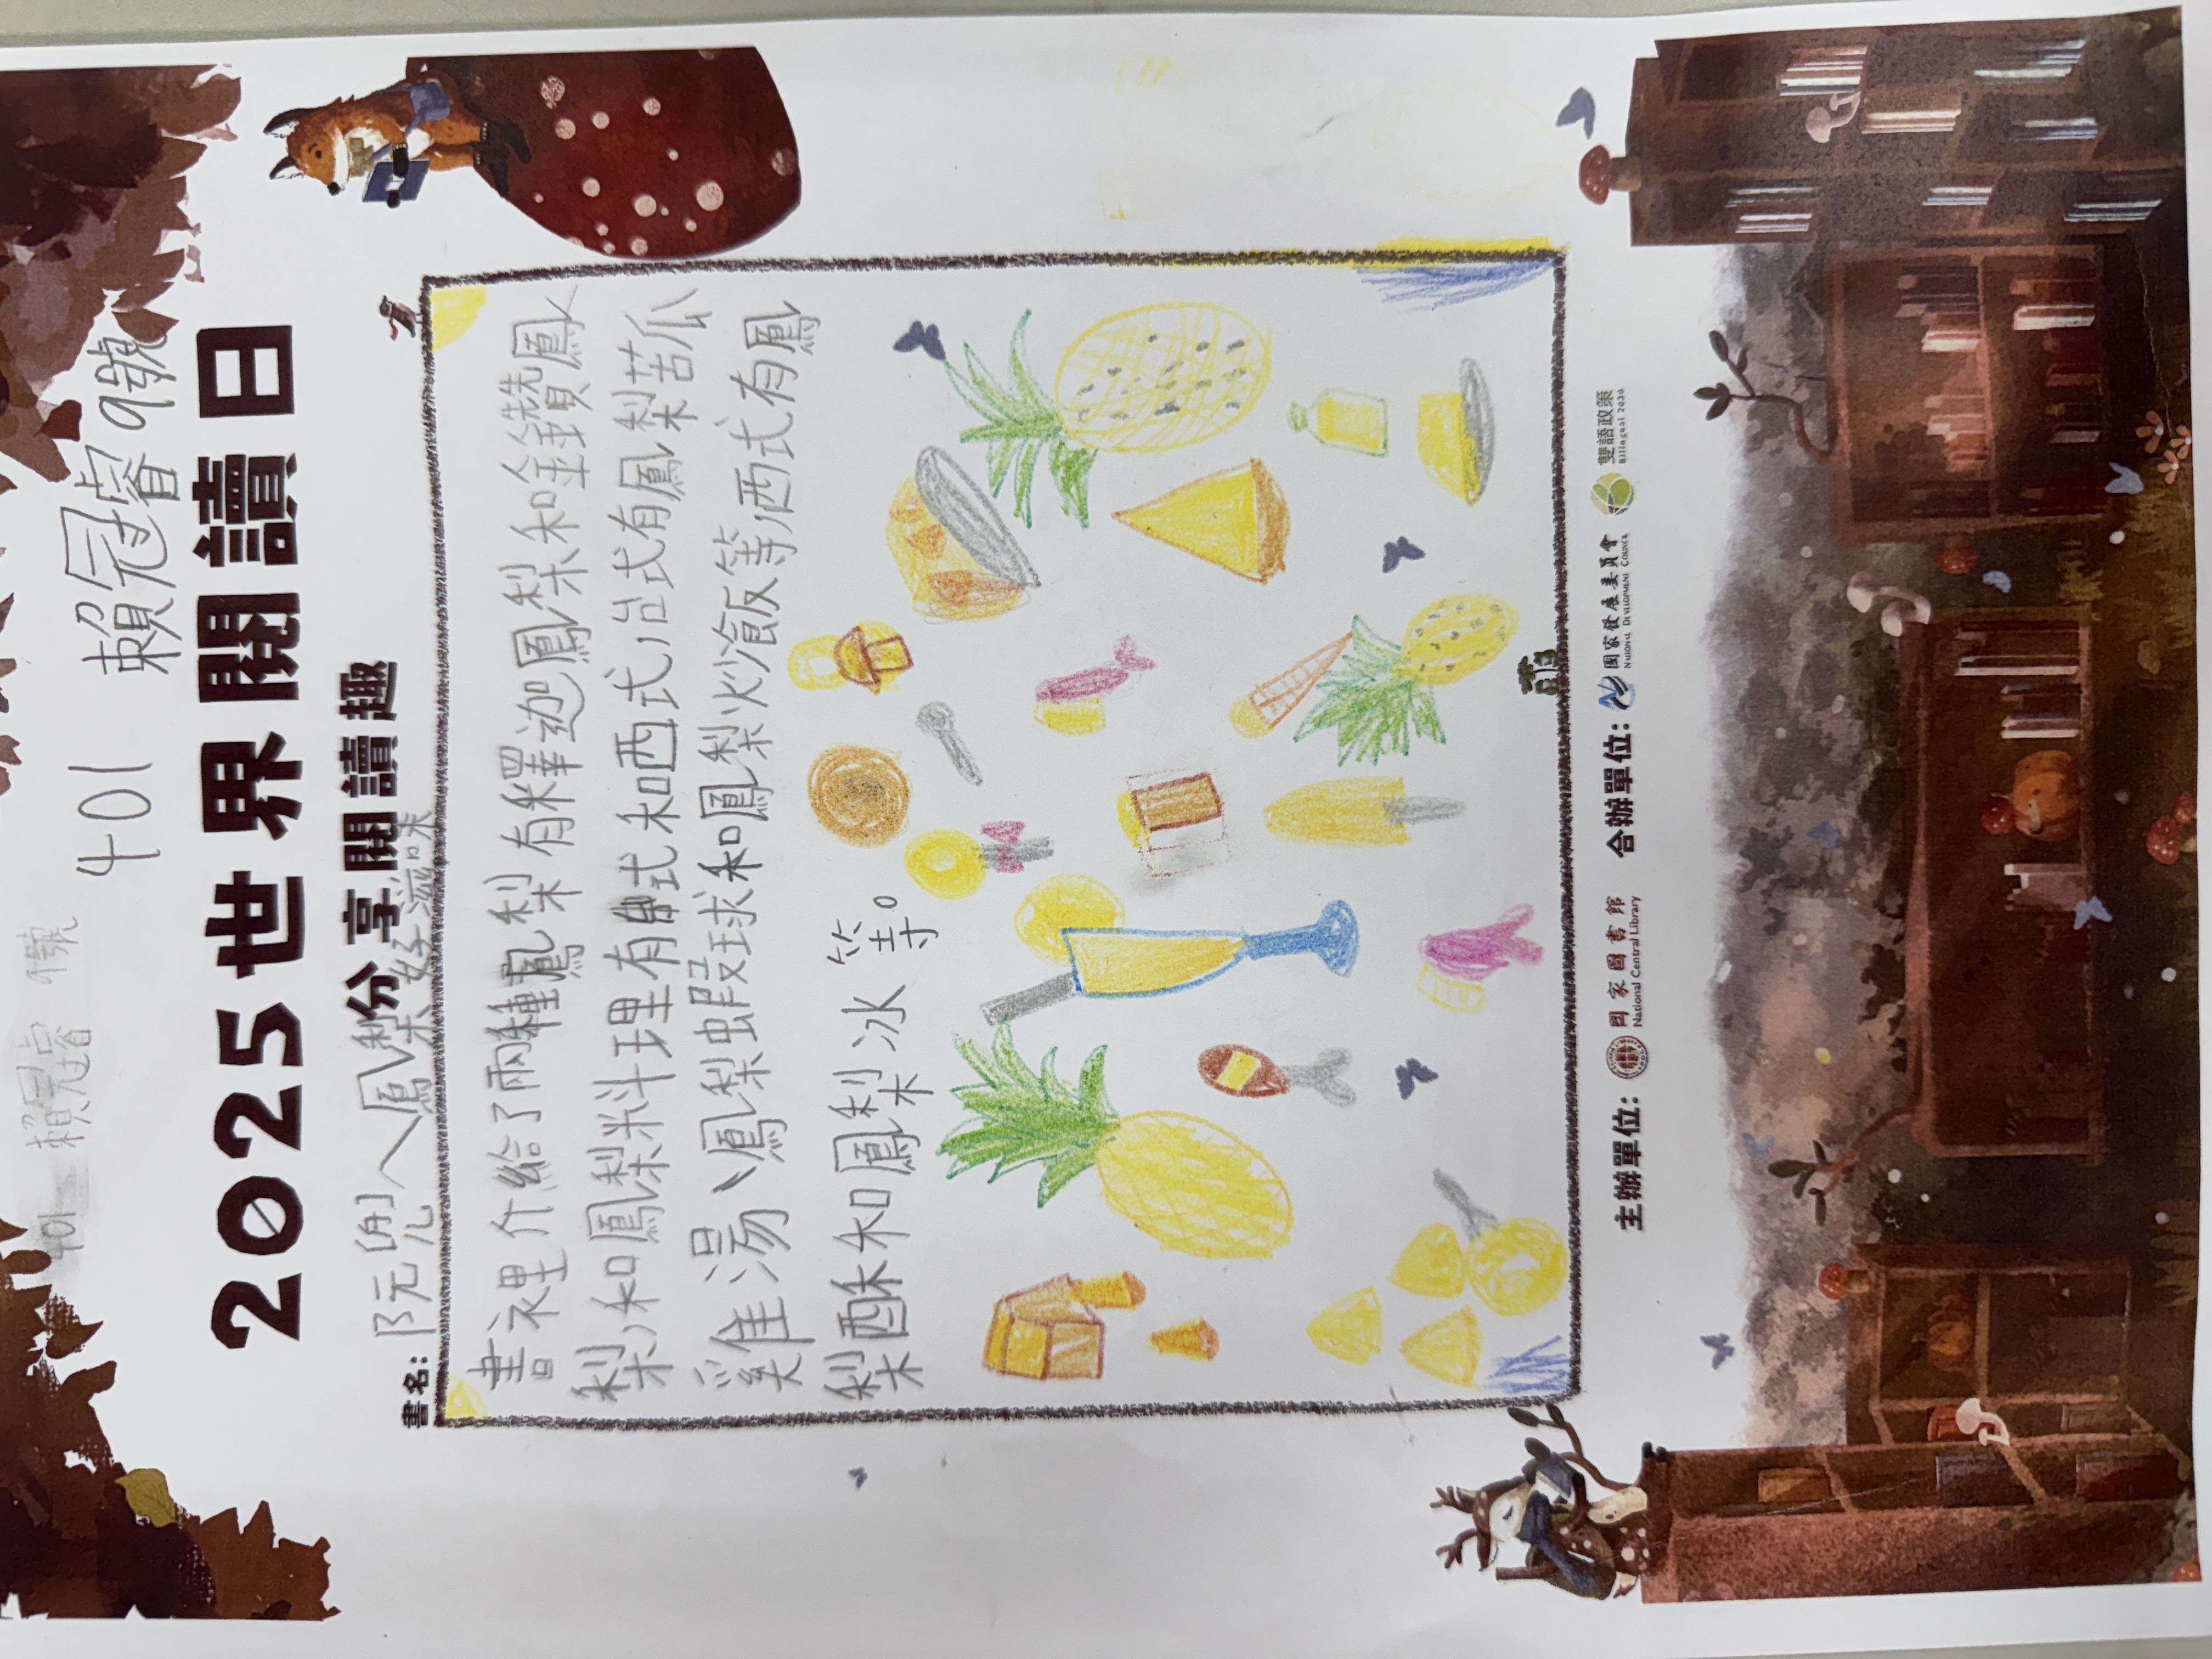 401 賴冠睿 9號
401 賴冠睿 9號
2025世界閱讀日
分享閱讀趣
書名: 阮兜ㄟ鳳梨好滋味
書裡介紹了兩種鳳梨有釋迦鳳梨和金鑽鳳
梨,和鳳梨料理有台式和西式,台式有鳳梨苦瓜
雞湯、鳳梨蝦球和鳳梨炒飯等,西式有鳳
梨酥和鳳梨冰等。
主辦單位: 國家圖書館 National Central Library 合辦單位: 國家發展委員會 National Development Council 雙語政策 Bilingual 2030